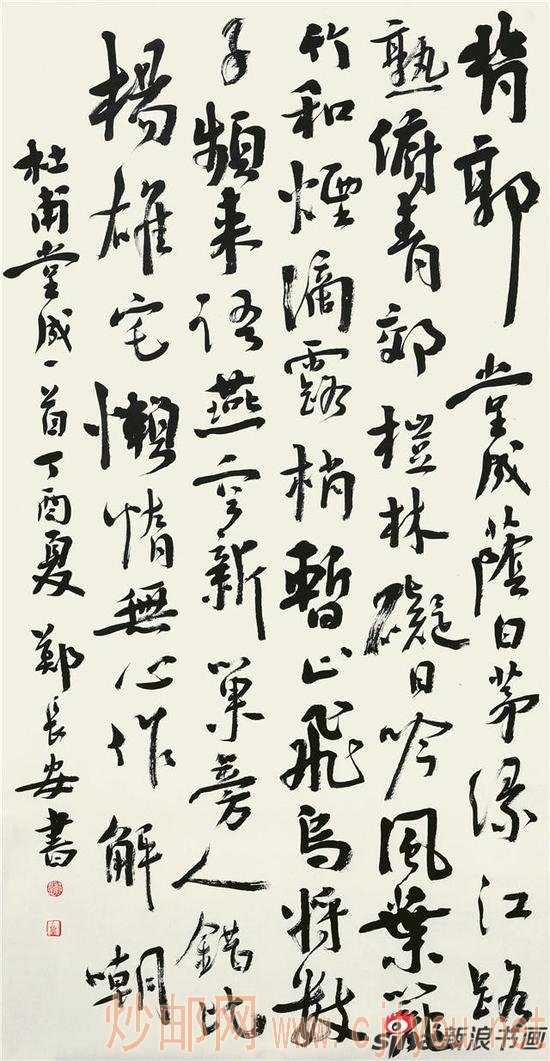 背郭堂成蔭白茅緣江路
熟俯青郊榿林礙日吟風葉籠
竹和煙滴露梢暫止飛烏將數
子頻來語燕定新巢旁人錯比
楊雄宅懶惰無心作解嘲
杜甫堂成一首丁酉夏鄭長安書
炒邮网
sina新浪书画